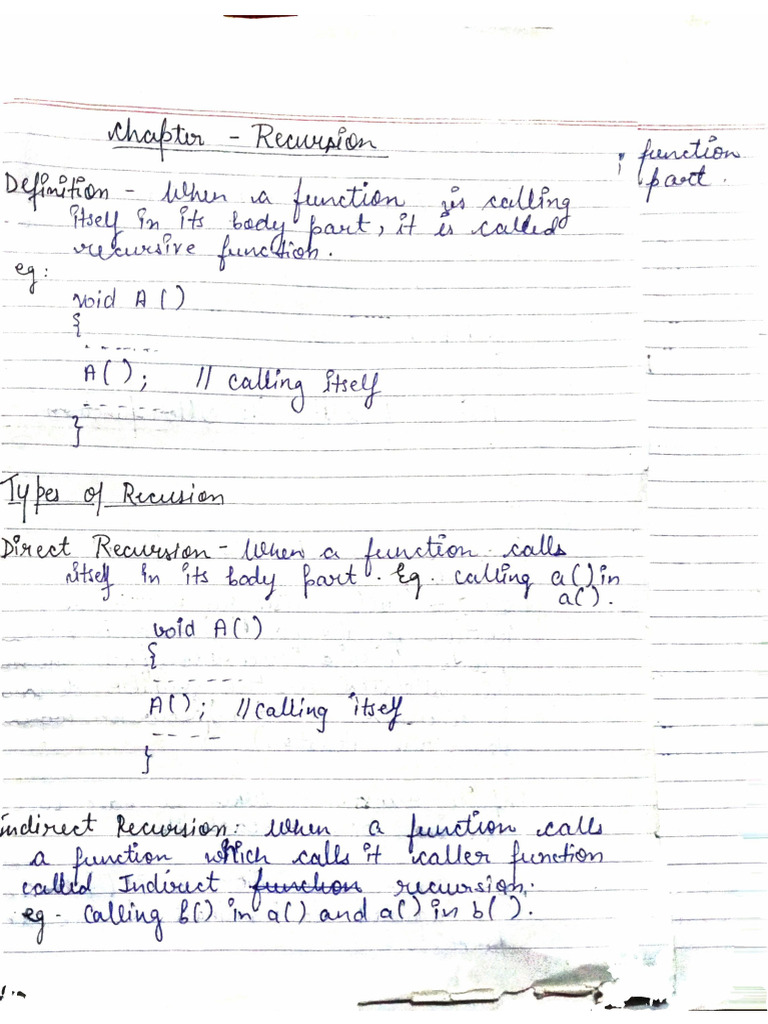 Chapter - Recursion
Definition - When a function is calling
itself in its body part, it is called
recursive function.
eg:
void A ()
{
- - - - - -
A();   // calling itself
- - - - - -
}
Types of Recusion
Direct Recursion - When a function calls
itself in its body part. Eg. calling a() in
a().
void A()
{
- - - - - - -
A();   // calling itself
- - - - - -
}
indirect Recursion: When a function calls
a function which calls it caller function
called Indirect function recursion.
eg - calling b() in a() and a() in b().
; function
part.